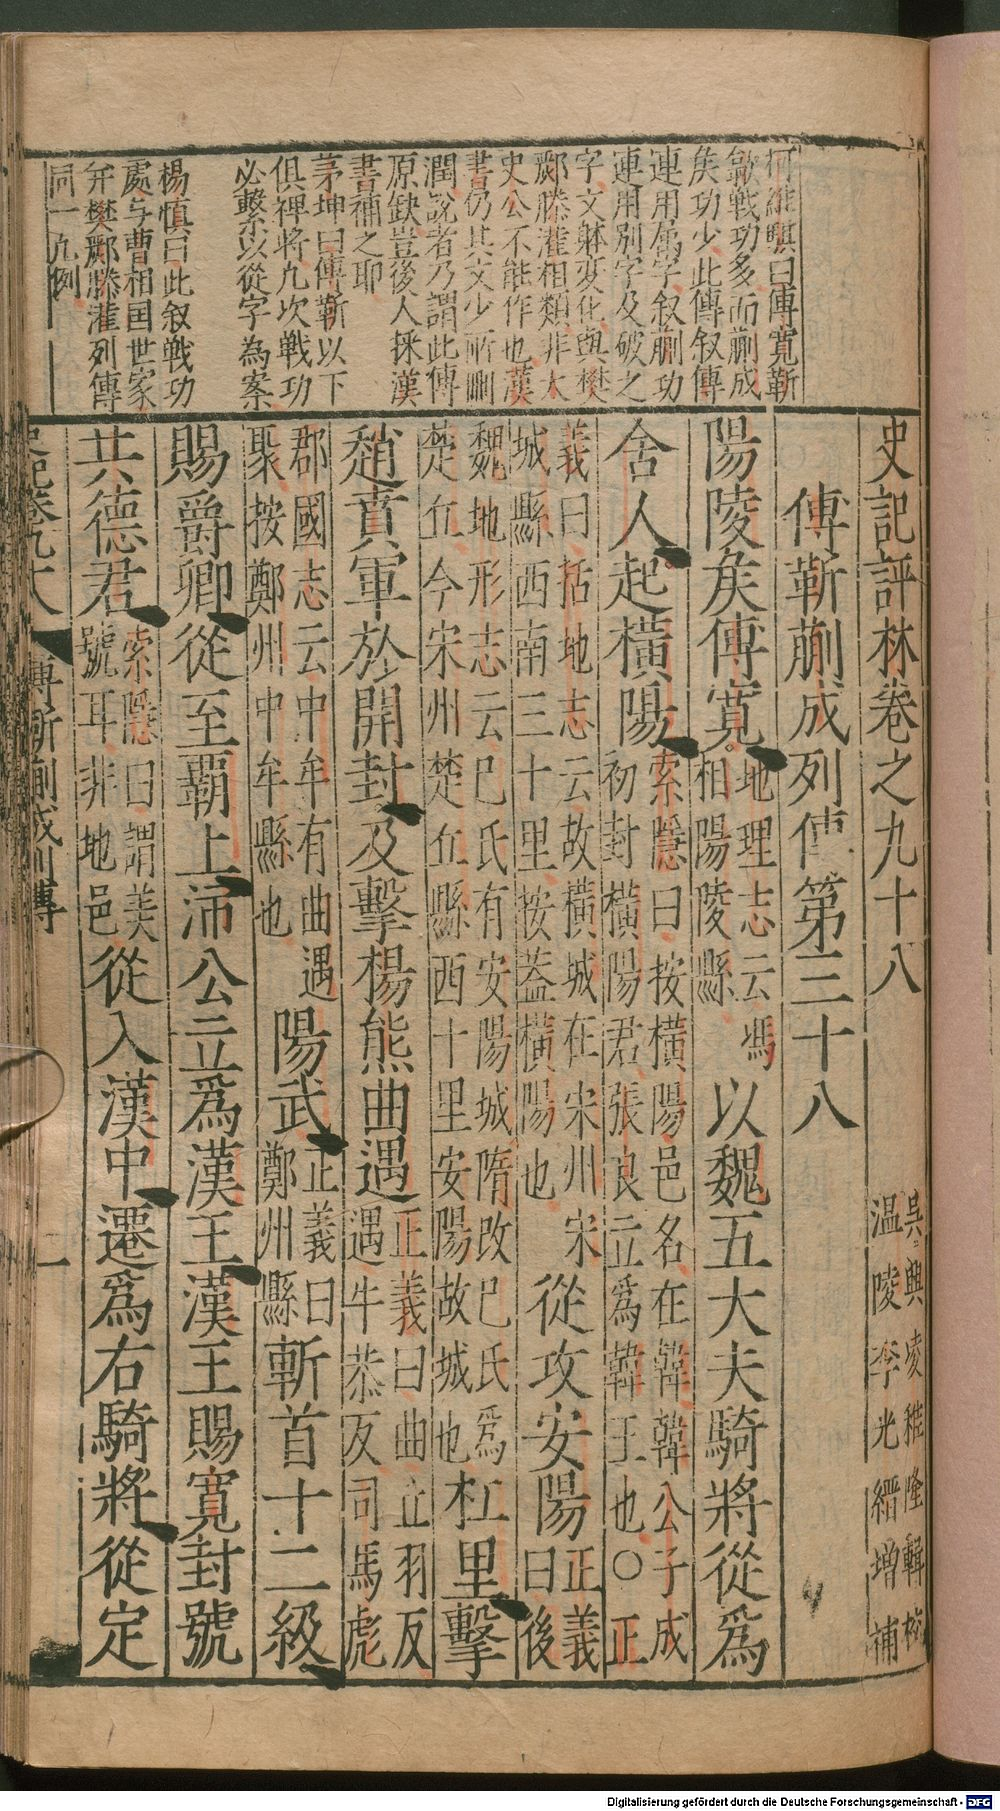 柯維騏曰傅寬靳
歙戰功多而蒯成
矦功少此傳叙傅
連用屬字叙蒯功
連用別字及破之
字文躰変化與樊
酈滕灌相類非太
史公不能作也漢
書仍其文少所刪
潤說者乃謂此傳
原缺豈後人採漢
書補之耶
茅坤曰傅靳以下
俱裨將凢次戰功
必繫以從字為案
楊慎曰此叙戰功
處与曹相囯世家
并樊酈滕灌列傳
同一凢例
史記評林卷之九十八
吳興凌稚隆輯校
温陵李光縉增補
傅靳蒯成列傳第三十八
陽陵矦傅寬
地理志云馮
相陽陵縣
以魏五大夫騎將從爲
舍人起橫陽
索隱曰按橫陽邑名在韓韓公子成
初封橫陽君張良立爲韓王也○正
義曰括地志云故橫城在宋州宋
城縣西南三十里按蓋橫陽也
從攻安陽
正義
曰後
魏地形志云巳氏有安陽城隋改巳氏爲
楚丘今宋州楚丘縣西十里安陽故城也
杠里擊
趙賁軍於開封及擊楊熊曲遇
正義曰曲丘羽反
遇牛恭反司馬彪
郡國志云中牟有曲遇
聚按鄭州中牟縣也
陽武
正義曰
鄭州縣
斬首十二級
賜爵卿從至霸上沛公立爲漢王漢王賜寬封號
共德君
索隱曰謂美
號耳非地邑
從入漢中遷爲右騎將從定
史記卷九十八
傅靳蒯成列傳
一
Digitalisierung gefördert durch die Deutsche Forschungsgemeinschaft - DFG